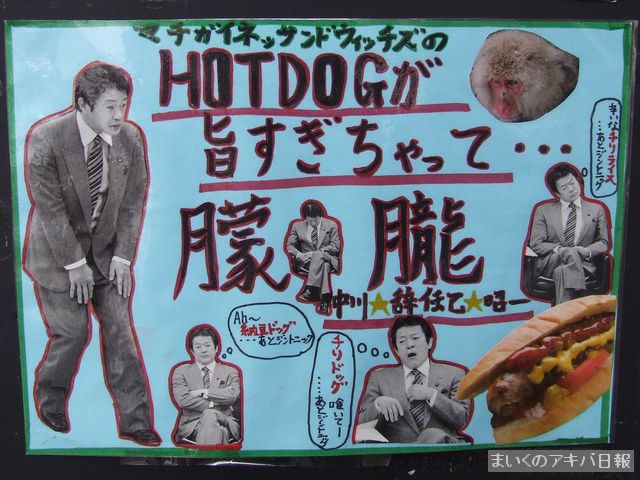 マチガイネッサンドウィッチズの
HOTDOGが
旨すぎちゃって・・・
朦朧
中川★辞任乙★昭一
辛いなチリライス
…あとジントニック
Ah〜
納豆ドッグ
…あとジントニック
チリドッグ
喰いてー
…あとジントニック
まいくのアキバ日報